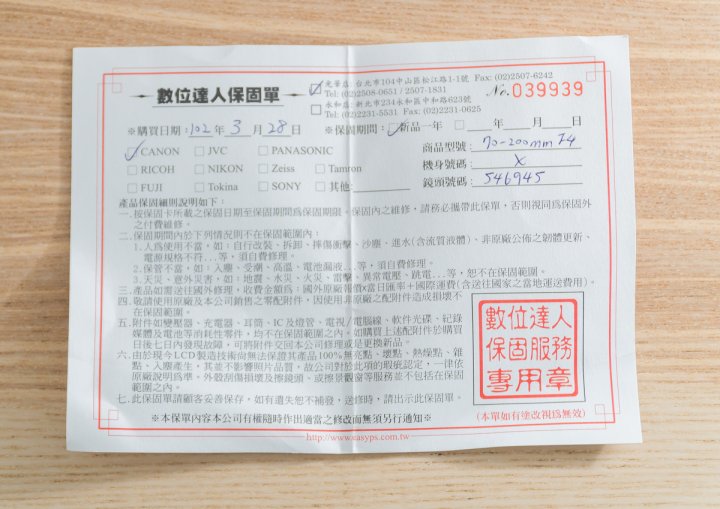 數位達人保固單
☑光華店:台北市104中山區松江路1-1號 Fax: (02)2507-6242
Tel: (02)2508-0651 / 2507-1831
□永和店:新北市234永和區中和路623號
Tel: (02)2231-5531 Fax: (02)2231-0625
No. 039939
※購買日期:102年3月28日 ※保固期間:☑新品一年 □___年___月___日
☑CANON □JVC □PANASONIC
□RICOH □NIKON □Zeiss □Tamron
□FUJI □Tokina □SONY □其他:
商品型號:70-200mm F4
機身號碼:X
鏡頭號碼:546945
產品保固細則說明如下:
一.按保固卡所載之保固日期至保固期間為保固期限。保固內之維修,請務必攜帶此保單,否則視同為保固外
之付費維修。
二.保固期間內於下列情況則不在保固範圍內:
1.人為使用不當,如:自行改裝、拆卸、摔傷衝擊、沙塵、進水(含流質液體)、非原廠公佈之韌體更新、
電源規格不符...等,須自費修理。
2.保管不當,如:入塵、受潮、高溫、電池漏液...等,須自費修理。
3.天災、意外災害,如:地震、水災、火災、雷擊、異常電壓、跳電...等,恕不在保固範圍。
三.產品如需送往國外修理,收費金額為:國外原廠報價x當日匯率+國際運費(含送往國家之當地運送費用)。
四.敬請使用原廠及本公司銷售之零配附件,因使用非原廠之配附件造成損壞不
在保固範圍。
五.附件如變壓器、充電器、耳筒、IC及燈管、電視/電腦線、軟件光碟、紀錄
媒體及電池等消耗性零件,均不在保固範圍之內。如購買上述配附件於購買
日後七日內發現故障,可將附件交回本公司修理或是更換新品。
六.由於現今LCD製造技術尚無法保證其產品100%無亮點、壞點、熱燥點、雜
點、入塵產生,其並不影響照片品質,故公司對於此項的瑕疵認定,一律依
原廠說明為準,外殼刮傷損壞及擦鏡頭、或擦景觀窗等服務並不包括在保固
範圍之內。
七.此保固單請顧客妥善保存,如有遺失恕不補發,送修時,請出示此保固單。
數位達人
保固服務
專用章
※本保單內容本公司有權隨時作出適當之修改而無須另行通知※
(本單如有塗改視為無效)
http://www.easyps.com.tw